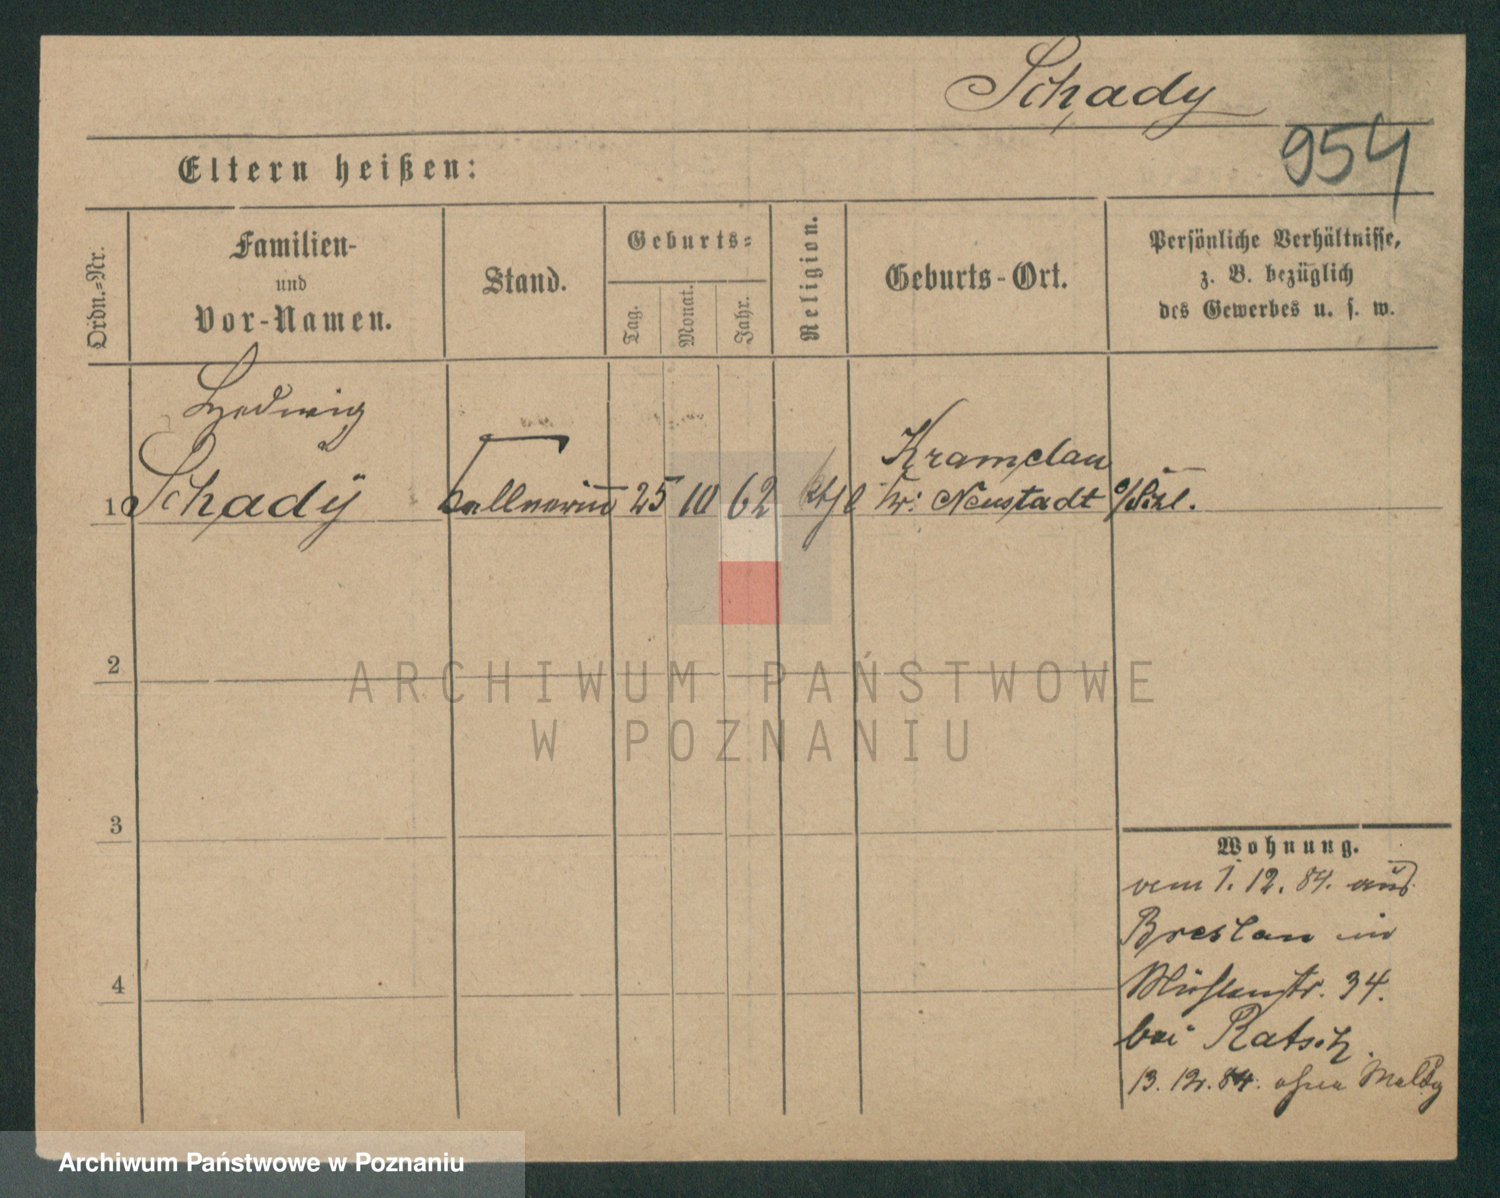 Schady
954
Eltern heißen:
Ordn.-Nr.
Familien-
und
Vor-Namen.
Stand.
Geburts-
Tag.
Monat.
Jahr.
Religion.
Geburts-Ort.
Persönliche Verhältnisse,
z. B. bezüglich
des Gewerbes u. s. w.
Hedwig
Schady
1
Kellnerin
25
10
62
kath
Kr: Neustadt O/Schl.
2
3
4
Wohnung.
vom 1. 12. 84. aus
Breslau in
Mühlenstr. 34.
bei Ratsch.
13. 12. 84. ohne Meldg
ARCHIWUM PAŃSTWOWE
W POZNANIU
Archiwum Państwowe w Poznaniu